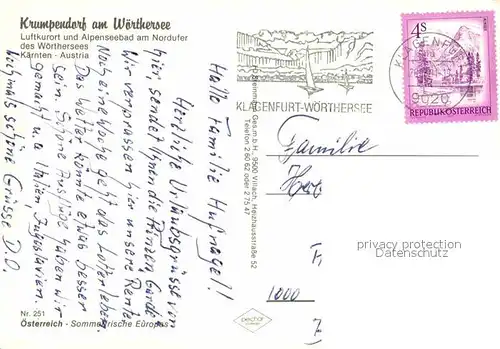 Krumpendorf am Wörthersee
Luftkurort und Alpenseebad am Nordufer
des Wörthersees
Kärnten - Austria
Hallo Familie Hufnagel!
Herzliche Urlaubsgrüsse von
hier, sendet Ihnen die Garde
Noch eine Woche geht das Lotterleben.
Wir verprassen hier unsere Rente
Das Wetter könnte etwas besser
sein. Schöne Ausflüge haben wir
gemacht n. Italien Jugoslavien.
Nochmals schöne Grüsse D.O.
Nr. 251
Österreich - Sommerfrische Europas
Ges.m.b.H., 9500 Villach, Heizhausstraße 52
Telefon 2 60 62 oder 2 75 47
KLAGENFURT-WÖRTHERSEE
KLAGENFURT
9020
4S
REPUBLIK ÖSTERREICH
Familie
1000
privacy protection
Datenschutz